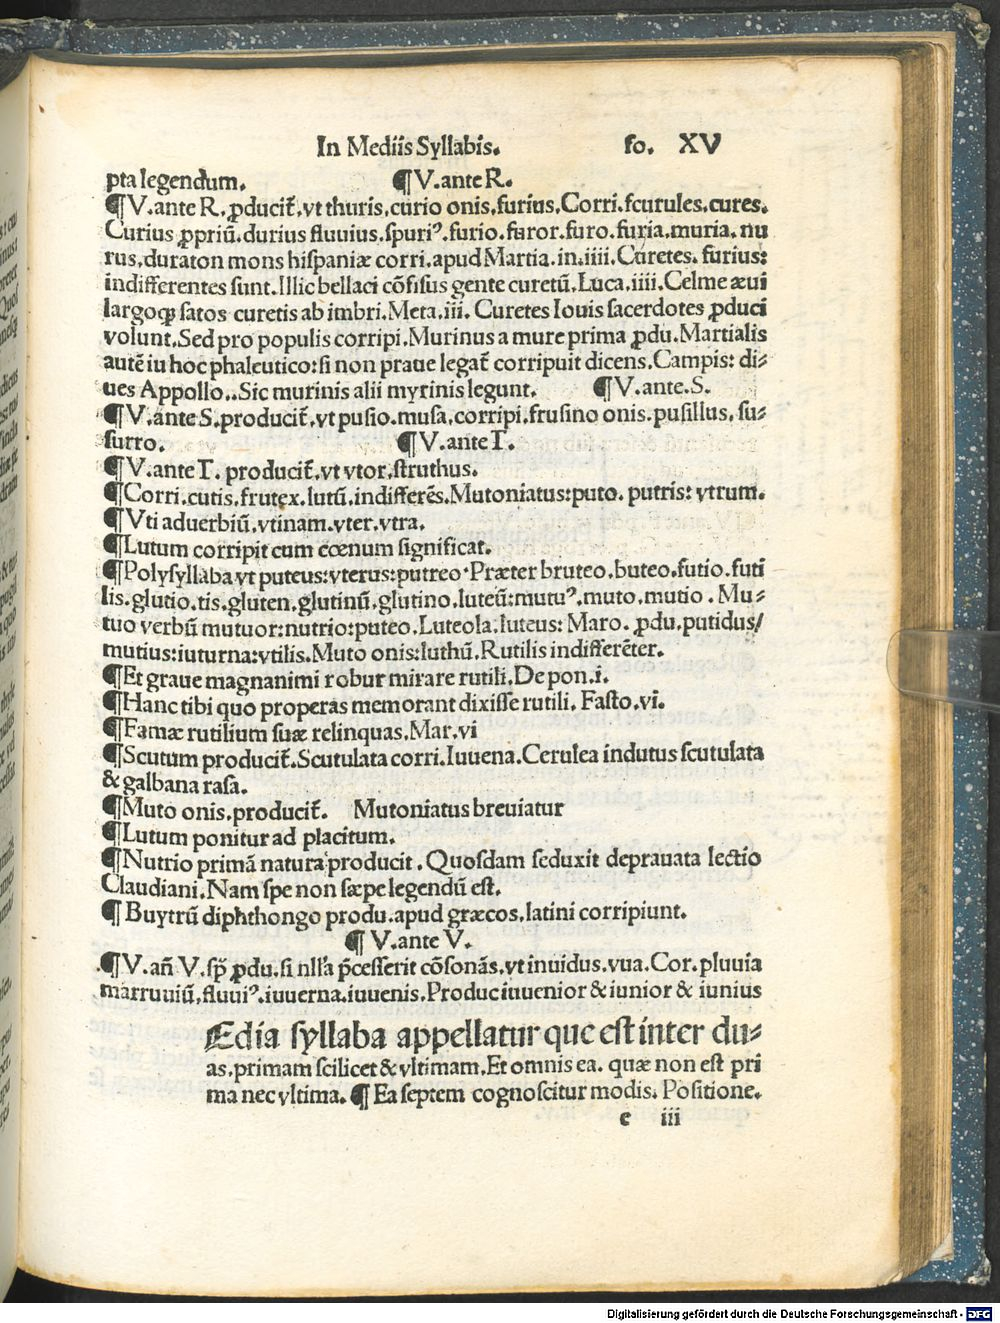 In Mediis Syllabis. fo. XV
pta legendum. ¶ V. ante R.
¶ V. ante R. ꝓducit̃. vt thuris, curio onis, furius. Corri. ſcurules. cures.
Curius ꝓpriũ. durius fluuius. ſpuriꝰ. furio. furor. furo. furia. muria. nu
rus, duraton mons hiſpaniæ corri. apud Martia. in. iiii. Curetes. furius:
indifferentes ſunt. Illic bellaci cõfiſus gente curetũ. Luca. iiii. Celme æui
largoqꝫ ſatos curetis ab imbri. Meta. iii. Curetes Iouis ſacerdotes ꝓduci
volunt. Sed pro populis corripi. Murinus a mure prima ꝓdu. Martialis
autẽ iu hoc phaleutico: ſi non praue legat̃ corripuit dicens. Campis: di⸗
ues Appollo,. Sic murinis alii myrinis legunt. ¶ V. ante. S.
¶ V. ante S. producit̃. vt puſio. muſa, corripi. fruſino onis. puſillus, ſu⸗
ſurro. ¶ V. ante T.
¶ V. ante T. producit̃. vt vtor, ſtruthus.
¶ Corri. cutis. frutex. lutũ. indifferẽs. Mutoniatus: puto. putris: vtrum.
¶ Vti aduerbiũ. vtinam. vter. vtra.
¶ Lutum corripit cum cœnum ſignificat.
¶ Polyſyllaba vt puteus: vterus: putreo. Præter bruteo. buteo. futio. futi
lis. glutio. tis. gluten. glutinũ. glutino. luteũ: mutuꝰ. muto. mutio. Mu⸗
tuo verbũ mutuor: nutrio: puteo. Luteola: luteus: Maro. ꝓdu. putidus/
mutius: iuturna: vtilis. Muto onis: luthũ. Rutilis indifferẽter.
¶ Et graue magnanimi robur mirare rutili. De pon. i.
¶ Hanc tibi quo properas memorant dixiſſe rutili. Faſto. vi.
¶ Famæ rutilium ſuæ relinquas. Mar. vi
¶ Scutum producit̃. Scutulata corri. Iuuena. Cerulea indutus ſcutulata
& galbana raſa.
¶ Muto onis. producit̃. Mutoniatus breuiatur
¶ Lutum ponitur ad placitum.
¶ Nutrio primã natura producit. Quoſdam ſeduxit deprauata lectio
Claudiani. Nam ſpe non ſæpe legendũ eſt.
¶ Buytrũ diphthongo produ. apud græcos, latini corripiunt.
¶ V. ante V.
¶ V. añ V. ſp̃ ꝓdu. ſi nlľa p̃ceſſerit cõſonãs. vt inuidus. vua. Cor. pluuia
marruuiũ, fluuiꝰ. iuuerna. iuuenis. Produc iuuenior & iunior & iunius
Edia ſyllaba appellatur que eſt inter du⸗
as. primam ſcilicet & vltimam. Et omnis ea. quæ non eſt pri
ma nec vltima. ¶ Ea ſeptem cognoſcitur modis. Poſitione.
e iii
Digitalisierung gefördert durch die Deutsche Forschungsgemeinschaft - DFG